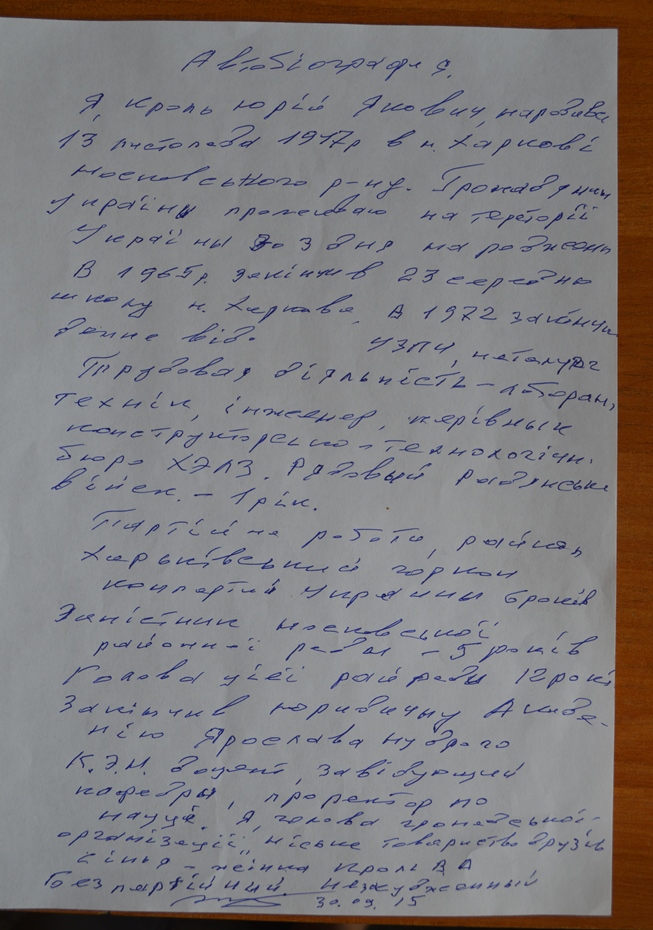 Автобіографія.
Я, Кроль Юрій Якович, народився
13 листопада 1947р в м. Харкові
Московського р-ну. Громадянин
України проживаю на територіі
Украіны зо дня народження
В 1965р. закінчив 23 середню
школу м. Харкова. В 1972 закінчив
денне від. УЗПИ, металург
Трудовая діяльність - лаборант,
технік, інженер, керівнык
конструкторсько-технологічн.
бюро ХЭЛЗ. Рядовый Радянськ
війск. - 1 рік.
Партійна робота, райком,
Харьківський горком
компартиі Украины 6 років
Замістник московськоі
районноі ради - 5 років
Голова ціеі райради 12 років
Закінчив юридичну Акаде-
мію Ярослава Мудрого
К.Э.Н. доцент, завідующий
кафедры, проректор по
науке. Я, голова громадськоі
організаціі, міське товариство друзів
- жінка Кроль В А
Безпартійний. Незасуджений
30.09.15